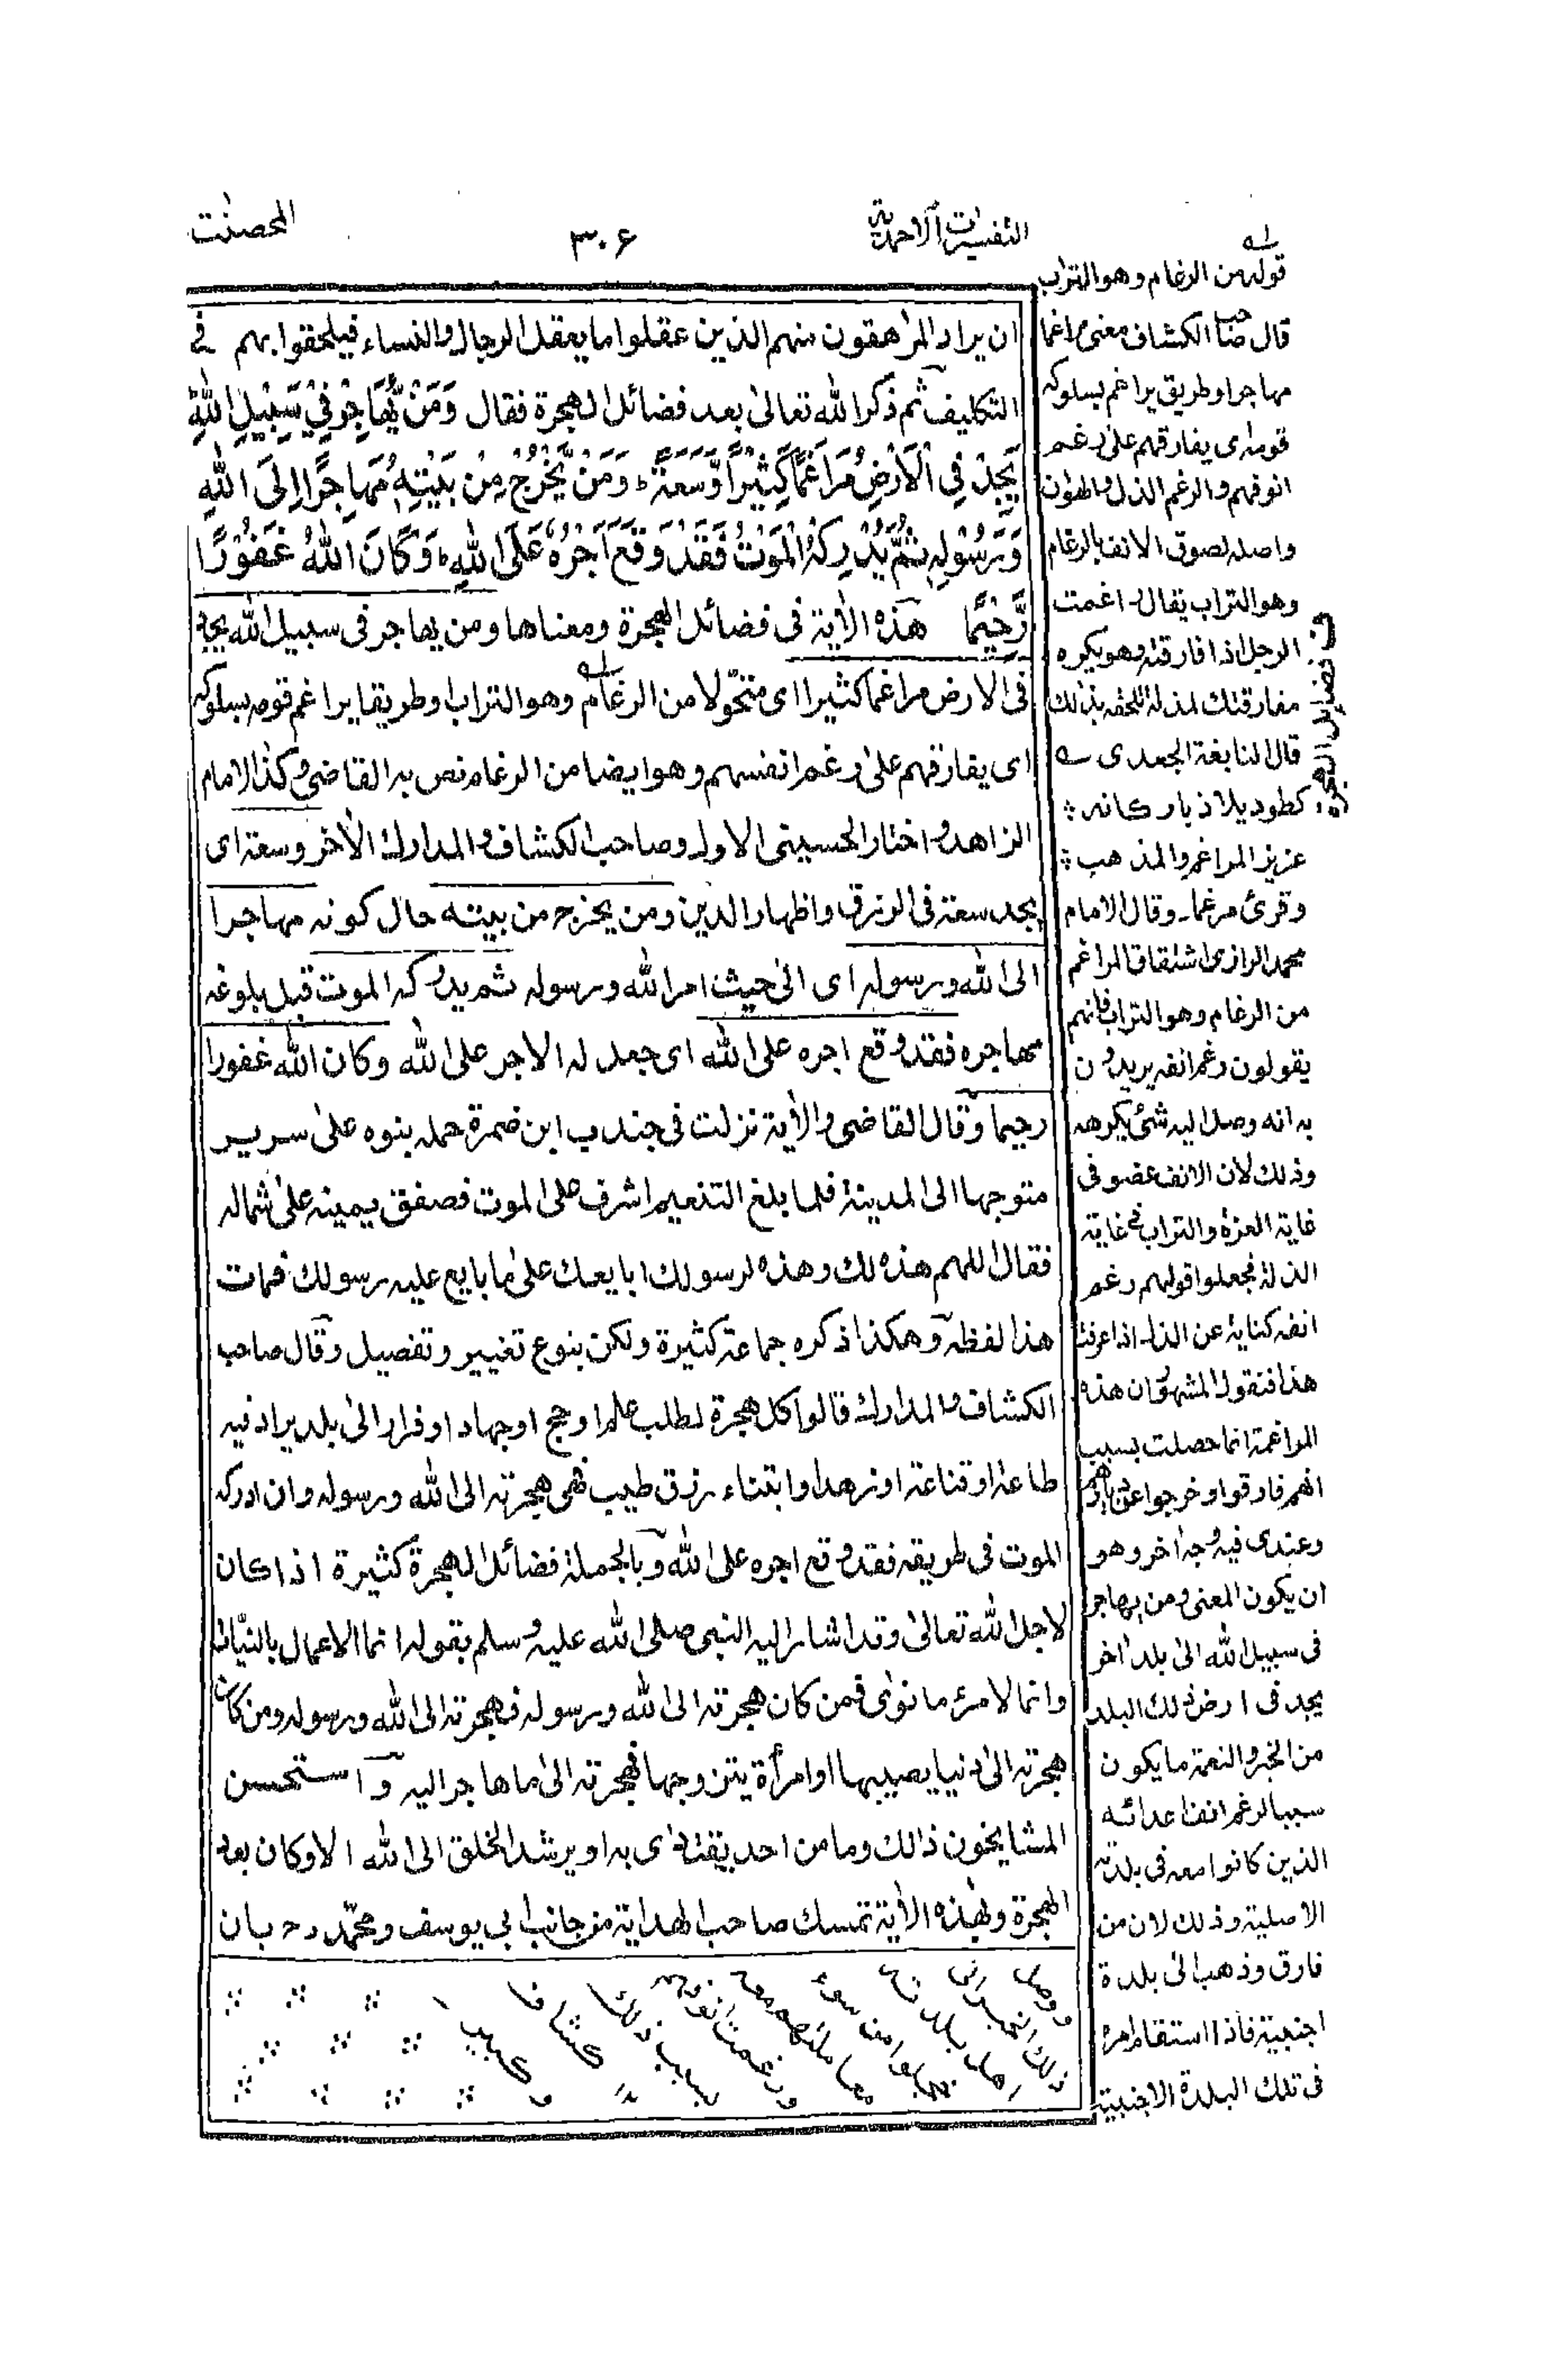 التفسيرات الاحمدية
٣٠۶
المحصنٰت
ان يراد المراهقون منهم الذين عقلوا ما يعقل الرجال والنساء فيلحقوا بهم فى
التكليف ثم ذكر الله تعالىٰ بعد فضائل الهجرة فقال وَمَنْ يُّهَاجِرْ فِيْ سَبِيْلِ اللّٰهِ
يَجِدْ فِي الْاَرْضِ مُرَاغَمًا كَثِيْرًا وَّسَعَةً ؕ وَمَنْ يَّخْرُجْ مِنْ بَيْتِهٖ مُهَاجِرًا اِلَى اللّٰهِ
وَرَسُوْلِهٖ ثُمَّ يُدْرِكْهُ الْمَوْتُ فَقَدْ وَقَعَ اَجْرُهٗ عَلَى اللّٰهِ ؕ وَكَانَ اللّٰهُ غَفُوْرًا
رَّحِيْمًا هذه الاٰية فى فضائل الهجرة ومعناها ومن يهاجر فى سبيل الله يجد
فى الارض مراغما كثيرا اى متحوّلا من الرغام وهو التراب او طريقا يراغم قومه بسلوكه
اى يفارقهم علىٰ رغم انفسهم وهو ايضا من الرغام نص به القاضى وكذا الامام
الزاهد واختار الحسينى الاول وصاحب الكشاف والمدارك الاٰخر وسعة اى
يجد سعة فى الرزق واظهار الدين ومن يخرج من بيته حال كونه مهاجرا
الى الله ورسوله اى الىٰ حيث امر الله ورسوله ثم يدركه الموت قبل بلوغه
مهاجره فقد وقع اجره على الله اى جعل له الاجر على الله وكان الله غفورا
رحيما وقال القاضى والاٰية نزلت فى جندب ابن ضمرة حمله بنوه علىٰ سرير
متوجها الى المدينة فلما بلغ التنعيم اشرف على الموت فصفق يمينه علىٰ شماله
فقال اللهم هذه لك وهذه لرسولك ابايعك علىٰ ما بايع عليه رسولك فمات
هذا لفظه وهكذا ذكره جماعة كثيرة ولكن بنوع تغيير وتفصيل وقال صاحب
الكشاف والمدارك قالوا كل هجرة لطلب علم او حج او جهاد او فرار الىٰ بلد يراد فيه
طاعة او قناعة او زهد او ابتناء رزق طيب فهى هجرته الى الله ورسوله وان ادركه
الموت فى طريقه فقد وقع اجره على الله وبالجملة فضائل الهجرة كثيرة اذا كان
لاجل الله تعالىٰ وقد اشار اليه النبى صلى الله عليه وسلم بقوله انما الاعمال بالنيّات
وانما لامرئ ما نوٰى فمن كان هجرته الى الله ورسوله فهجرته الى الله ورسوله ومن كان
هجرته الىٰ دنيا يصيبها او امرأة يتزوجها فهجرته الىٰ ما هاجر اليه واستحسن
المشايخون ذالك وما من احد يقتدٰى به او يرشد الخلق الى الله الا وكان بعد
الهجرة وبهٰذه الاٰية تمسك صاحب الهداية من جانب ابى يوسف ومحمّد رح بان
له
قوله من الرغام وهو التراب
قال صاحب الكشاف معنى مراغما
مهاجرا وطريق يراغم بسلوكه
قومه اى يفارقهم علىٰ رغم
انوفهم والرغم الذل والهوان
واصله لصوق الانف بالرغام
وهو التراب يقال راغمت
الرجل اذا فارقته وهو يكره
مفارقتك لمذلة تلحقه بذلك
قال النابغة الجعدى
كطود يلاذ باركانه
عزيز المراغم والمذهب
وقرئ مرغما۔ وقال الامام
محمد الرازى اشتقاق المراغم
من الرغام وهو التراب فانهم
يقولون رغم انفه يريدون
به انه وصل اليه شئ يكرهه
وذلك لان الانف عضو فى
غاية العزة والتراب فى غاية
الذلة فجعلوا قولهم رغم
انفه كناية عن الذل اذا عرفت
هذا فنقول المشهور ان هذه
المراغمة انما حصلت بسبب
انهم فارقوا وخرجوا عن ديارهم
وعندى فيه وجه اٰخر وهو
ان يكون المعنى ومن يهاجر
فى سبيل الله الىٰ بلد اٰخر
يجد فى ارض ذلك البلد
من الخير والنعمة ما يكون
سببا لرغم انف اعدائه
الذين كانوا معه فى بلدته
الاصلية وذلك لان من
فارق وذهب الىٰ بلدة
اجنبية فاذا استقام امره
فى تلك البلدة الاجنبية
ووصل
ذلك الخبر الى
اهل بلدته
خجلوا من سوء
معاملتهم معه
ورغمت انوفهم
بسبب ذلك
١٢ كشاف
وكبير
فى فضايل الهجرة